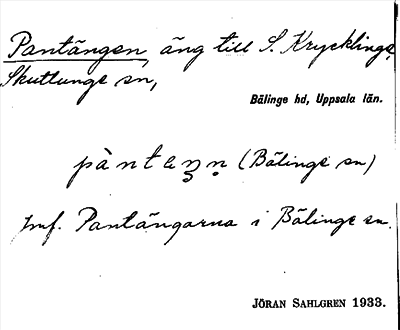 Pantängen, äng till S. Krycklinge,
Skuttunge sn,
Bälinge hd, Uppsala län.
(Bälinge sn)
Jmf. Pantängarna i Bälinge sn.
JÖRAN SAHLGREN 1933.